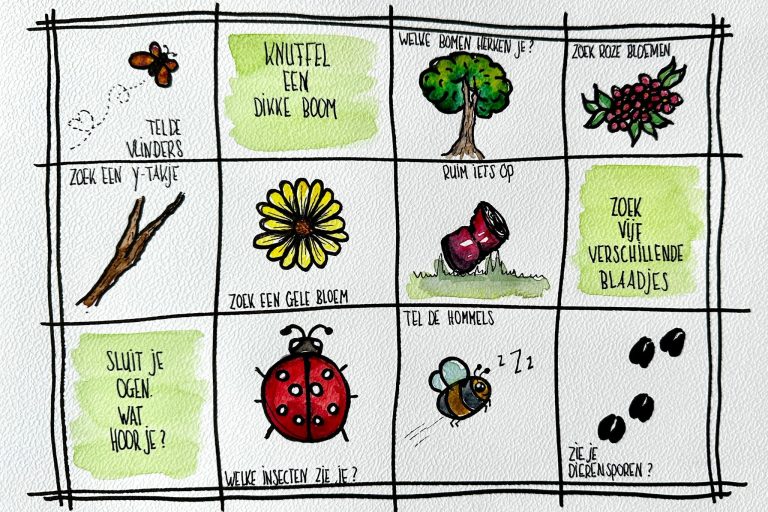 TEL DE
VLINDERS
KNUFFEL
EEN
DIKKE BOOM
WELKE BOMEN HERKEN JE?
ZOEK ROZE BLOEMEN
ZOEK EEN Y-TAKJE
ZOEK EEN GELE BLOEM
RUIM IETS OP
ZOEK
VIJF
VERSCHILLENDE
BLAADJES
SLUIT JE
OGEN.
WAT
HOOR JE?
WELKE INSECTEN ZIE JE?
TEL DE HOMMELS
z Z z
ZIE JE
DIERENSPOREN?